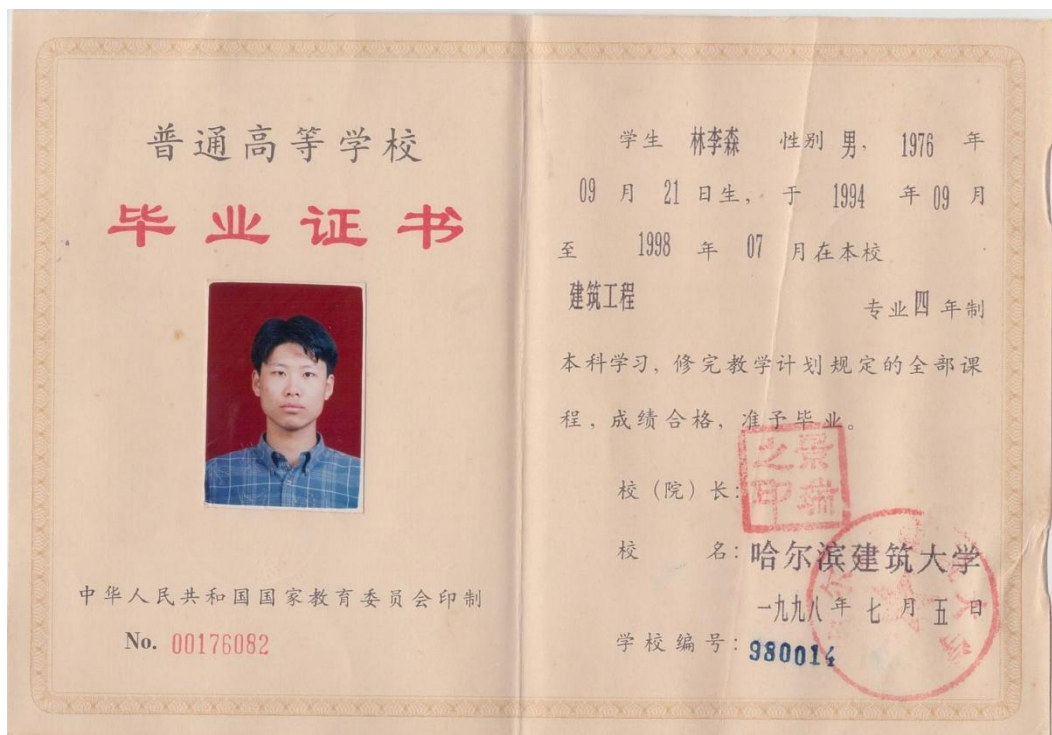 普通高等学校
毕业证书
中华人民共和国国家教育委员会印制
No. 00176082
学生 林李森 性别 男, 1976 年
09 月 21 日生, 于 1994 年 09 月
至 1998 年 07 月在本校
建筑工程 专业 四 年制
本科学习, 修完教学计划规定的全部课
程, 成绩合格, 准予毕业。
校(院)长:
景瑞之印
校 名: 哈尔滨建筑大学
一九九八 年 七 月 五 日
学校编号: 980014